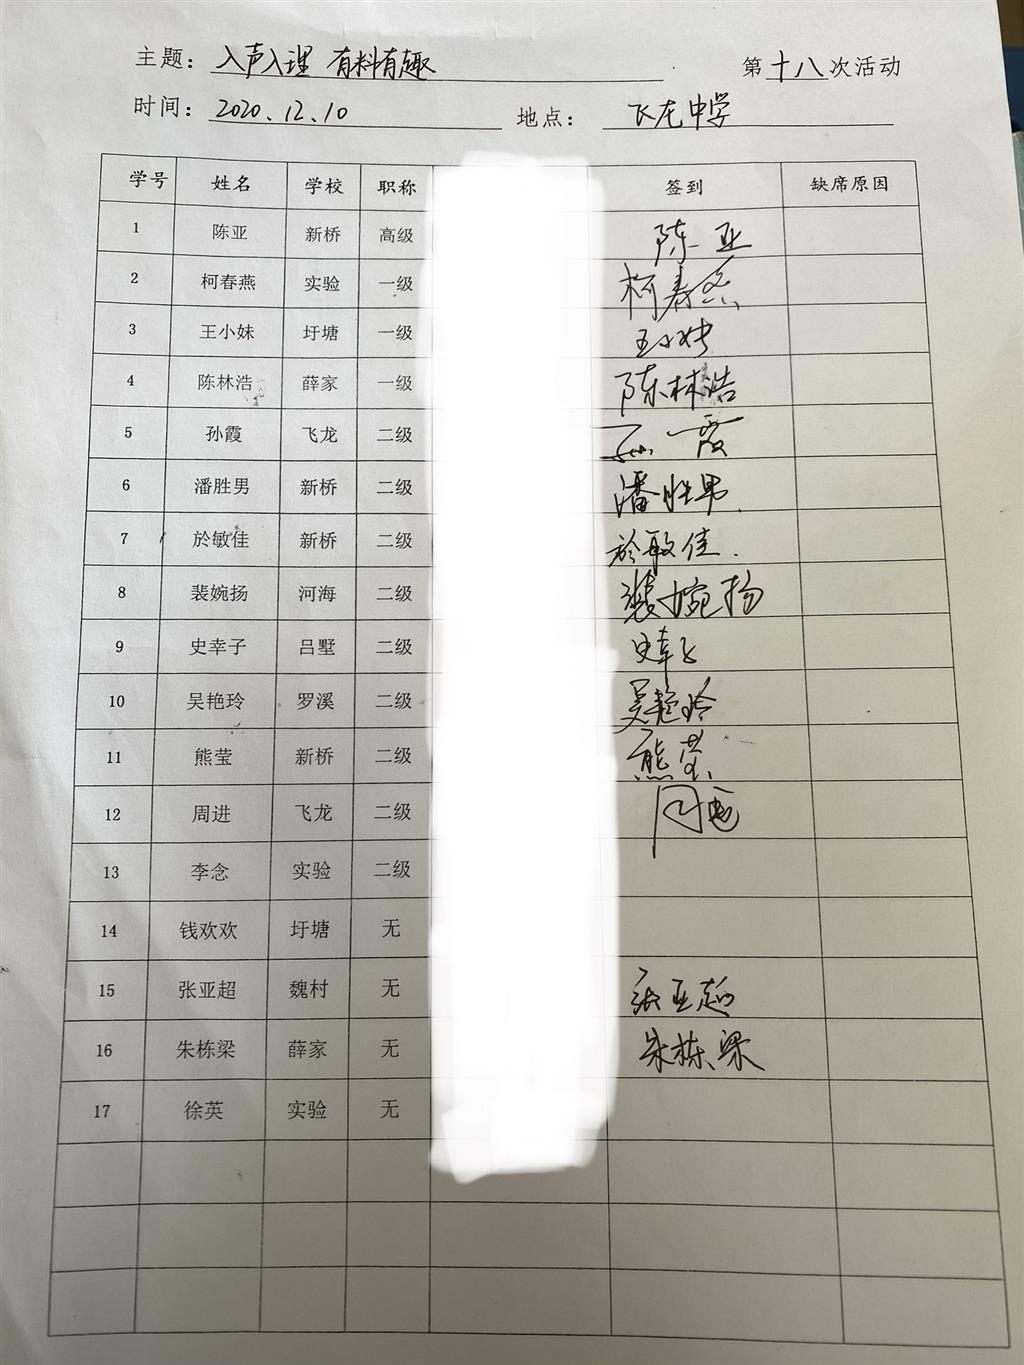 主题：入声入理 有料有趣 第十八次活动
时间：2020.12.10 地点：飞龙中学
学号 姓名 学校 职称 签到 缺席原因
1 陈亚 新桥 高级 陈亚
2 柯春燕 实验 一级 柯春燕
3 王小妹 圩塘 一级 王小妹
4 陈林浩 薛家 一级 陈林浩
5 孙霞 飞龙 二级 孙霞
6 潘胜男 新桥 二级 潘胜男.
7 於敏佳 新桥 二级 於敏佳.
8 裴婉扬 河海 二级 裴婉扬
9 史幸子 吕墅 二级 史幸子
10 吴艳玲 罗溪 二级 吴艳玲
11 熊莹 新桥 二级 熊莹
12 周进 飞龙 二级 周进
13 李念 实验 二级
14 钱欢欢 圩塘 无
15 张亚超 魏村 无 张亚超
16 朱栋梁 薛家 无 朱栋梁
17 徐英 实验 无